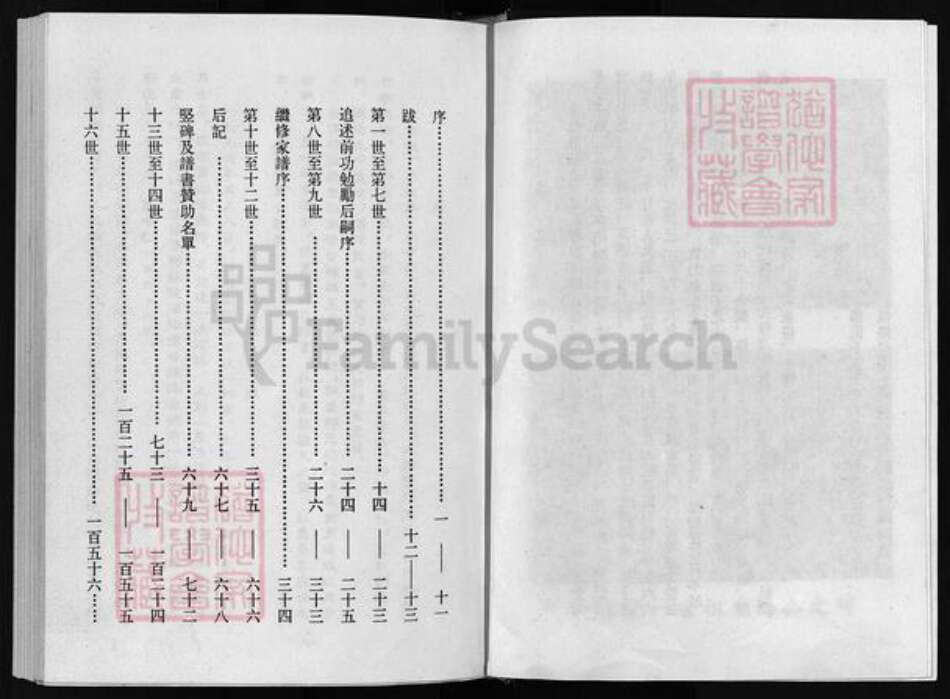 序……一——十一
跋……十二——十三
第一世至第七世……十四——二十三
追述前功勉勵后嗣序……二十四——二十五
第八世至第九世……二十六——三十三
繼修家譜序……三十四
第十世至十二世……三十五——六十六
后記……六十七——六十八
竪碑及譜書贊助名單……六十九——七十二
十三世至十四世……七十三——一百二十四
十五世……一百二十五——一百五十五
十六世……一百五十六……
FamilySearch